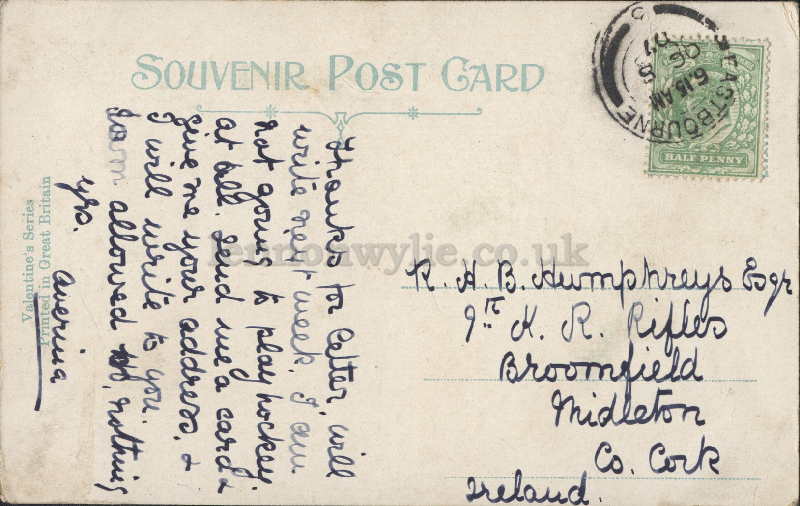 SOUVENIR POST CARD
EASTBOURNE
6.15 AM
OC 8
07
HALF PENNY
Valentine's Series
Printed in Great Britain
Thanks for letter. will
write next week. I am
not going to play hockey
at all. Send me a card &
give me your address. &
I will write to you.
allowed nothing
yrs. Averina
lennonwylie.co.uk
R. H. B. Humphreys Esqr
9th K. R. Rifles
Broomfield
Midleton
Co. Cork
Ireland.